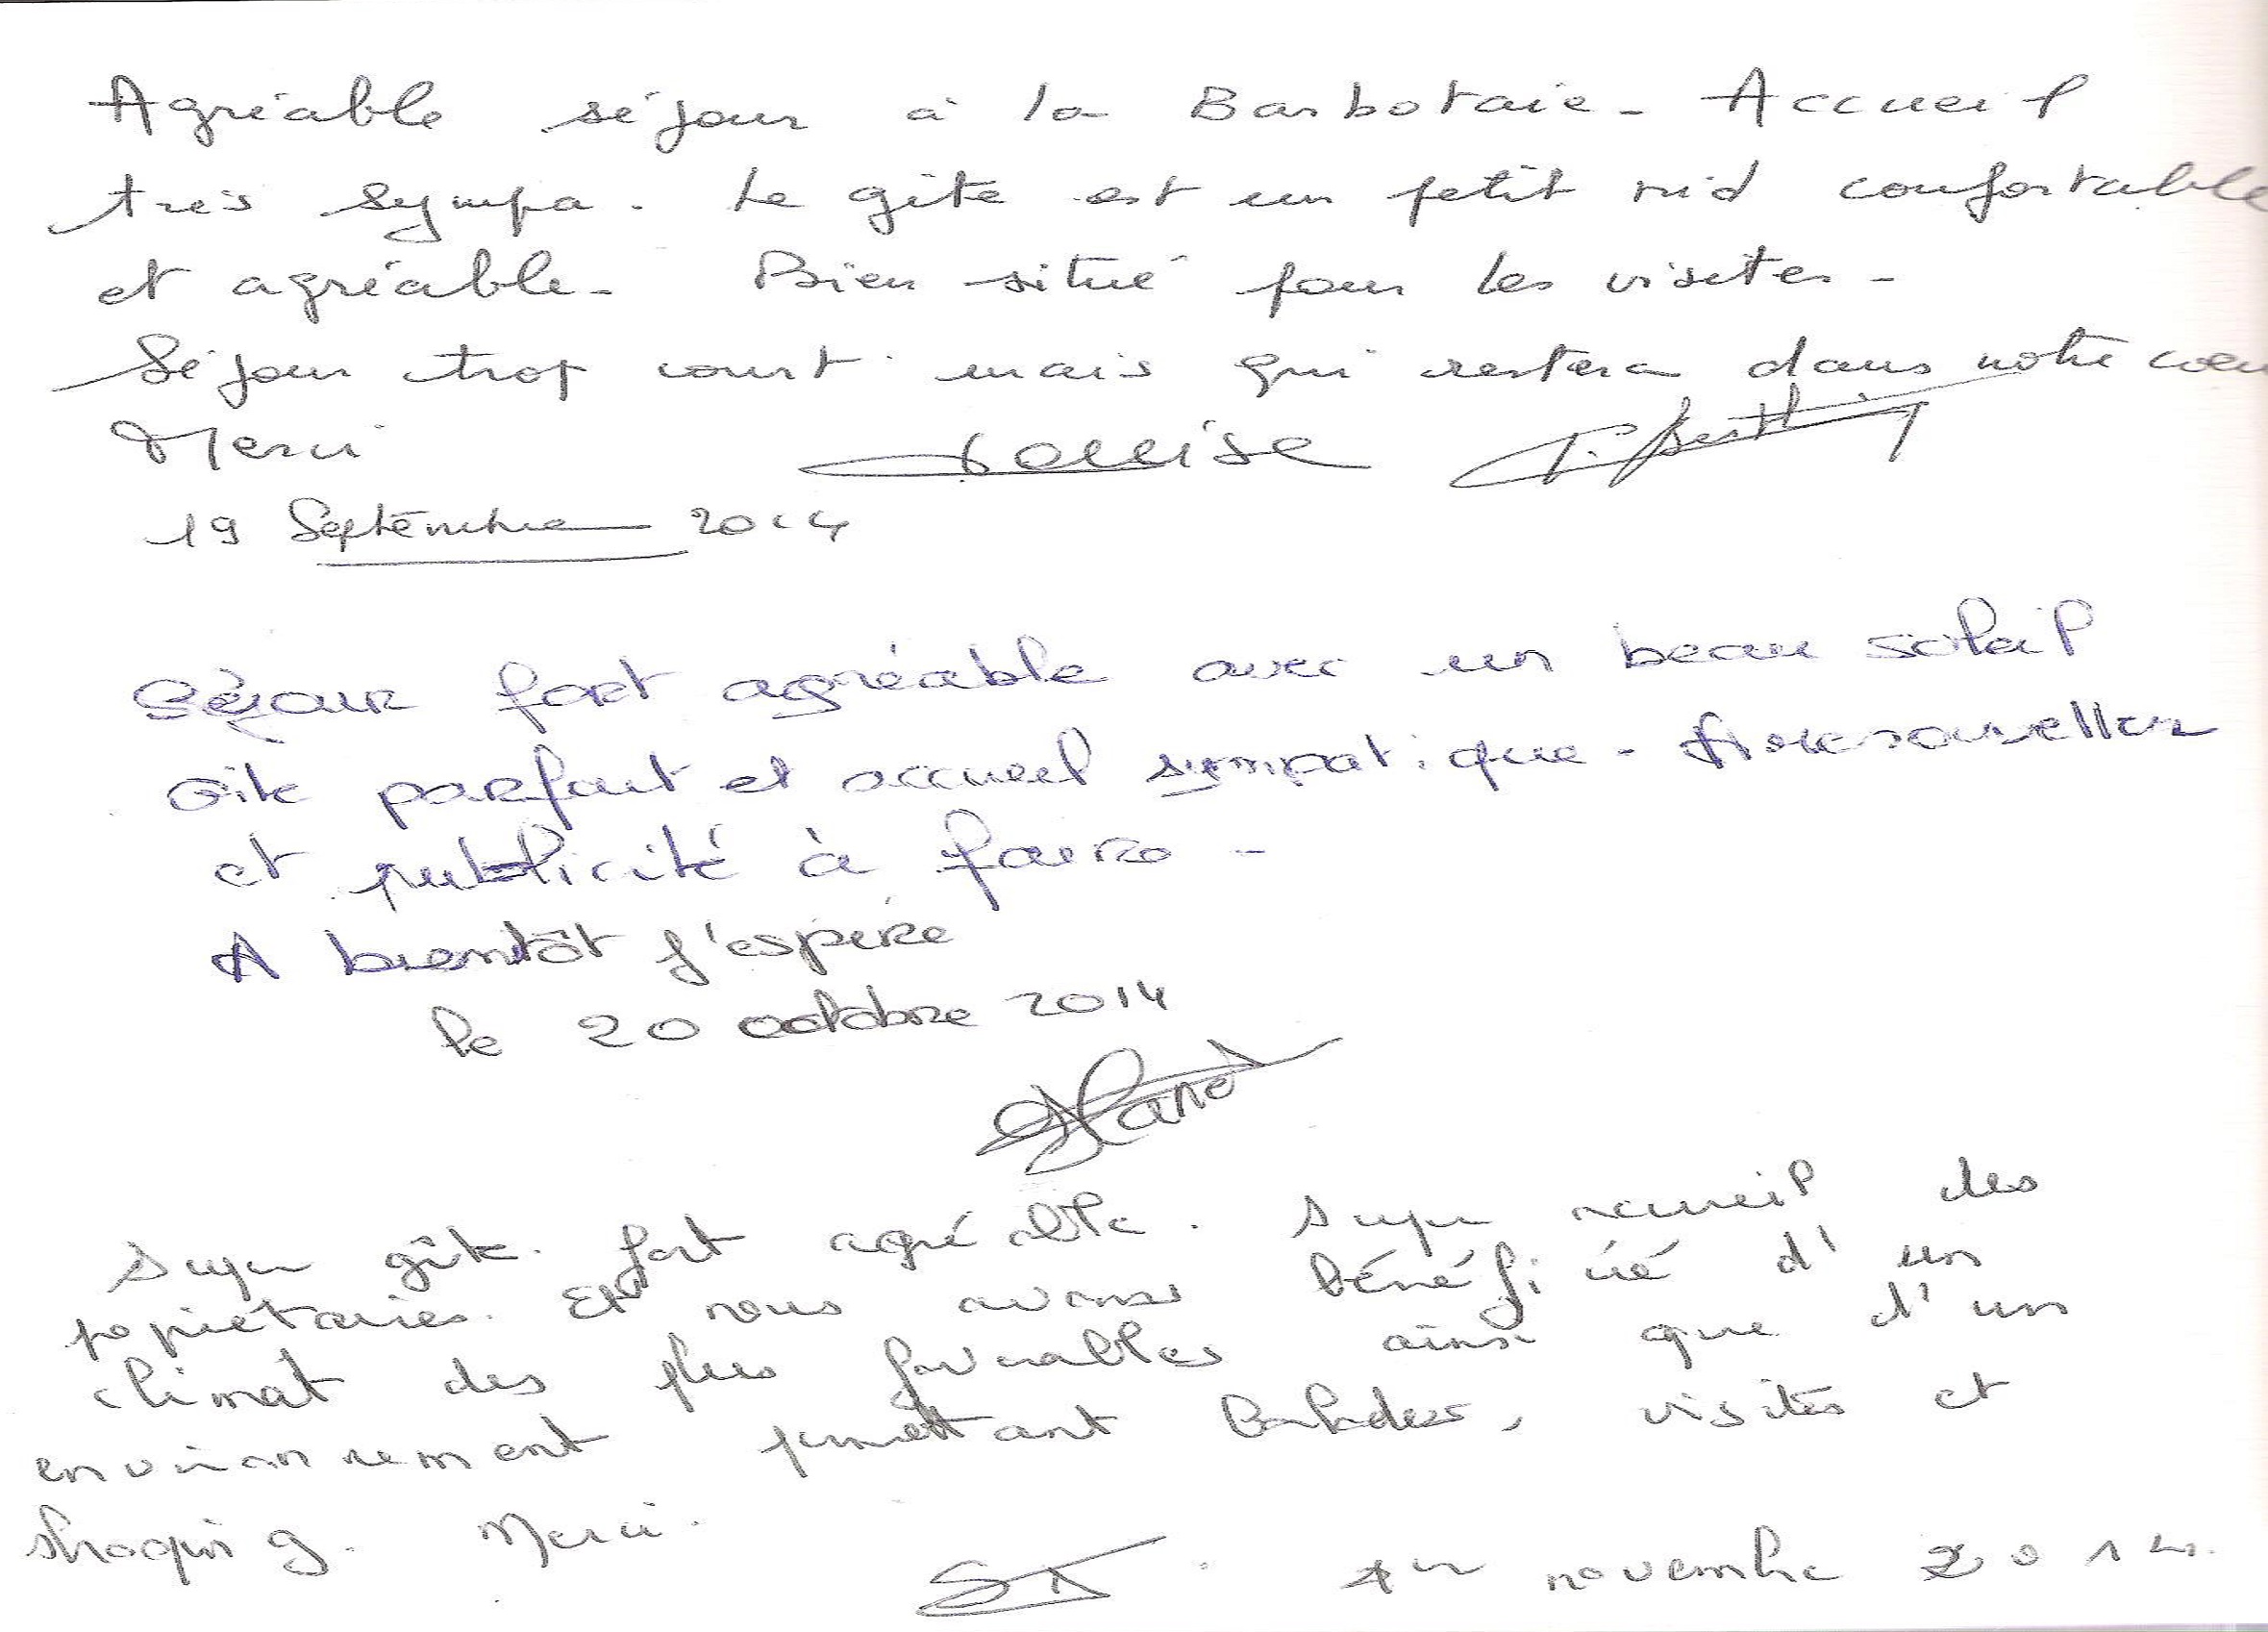 Agréable séjour à la Barbotaie - Accueil
très sympa. Le gîte est un petit nid confortable
et agréable - Bien situé pour les visites -
Séjour trop court mais qui restera dans notre coeu
Merci Louise
19 Septembre 2014
Séjour fort agréable avec un beau soleil
Gîte parfait et accueil sympatique - A renouveller
et publicité à faire -
A bientôt j'espère
le 20 octobre 2014
Super gîte. fort agréable. Super accueil des
propriétaires. Et nous avons bénéficié d'un
climat des plus favorables ainsi que d'un
environnement permettant balades, visites et
shopping. Merci.
1er novembre 2014.